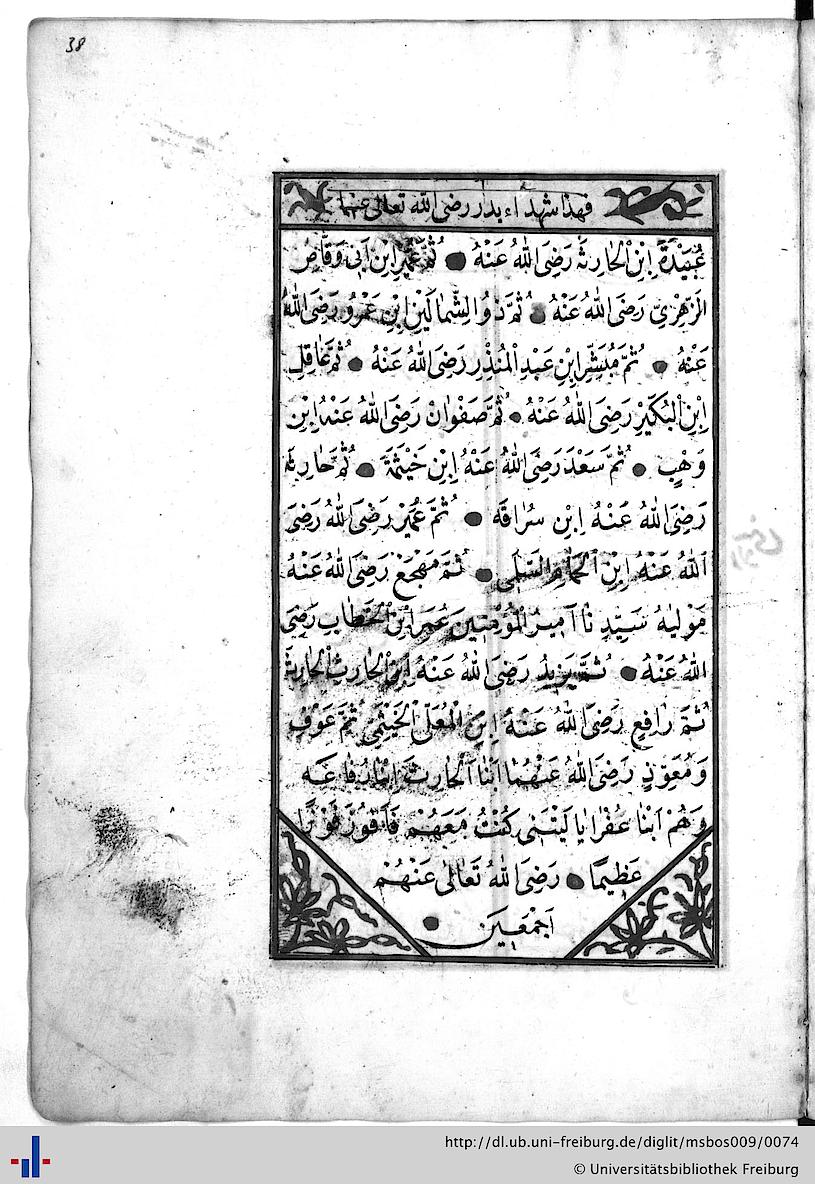 38
فهذا شهداء بدر رضى الله تعالى عنهم
عُبَيْدَةَ ابْنِ الْحَارِثَ رَضِىَ اللهُ عَنْهُ ثُمَّ عُمَيْرِ ابْنِ اَبِى وَقَّاصِ
الزُّهْرِىِّ رَضَى اللهُ عَنْهُ ثُمَّ ذُو الشِّمَالَيْنِ ابْنِ عَمْرُو رَضَى اللهُ
عَنْهُ ثُمَّ مُبَشِّرِ ابْنِ عَبْدِ الْمُنْذِرِ رَضَى اللهُ عَنْهُ ثُمَّ عَاقِلِ
ابْنِ الْبُكَيْرِ رَضَى اللهُ عَنْهُ ثُمَّ صَفْوَانْ رَضَى اللهُ عَنْهُ ابْنِ
وَهْبٍ ثُمَّ سَعْدَ رَضِىَ اللهُ عَنْهُ ابْنِ خَيْثَمَةَ ثُمَّ حَارِثَه
رَضِىَ اللهُ عَنْهُ ابْنِ سُرَاقَه ثُمَّ عُمَيْرْ رَضَى اللهُ رَضِىَ
اَللهُ عَنْهُ ابْنِ الْحُمَامِ السَّلَمِى ثُمَّ مَهْجَعْ رَضِىَ اللهُ عَنْهُ
مَوْلٰيهُ سَيِّدِنَا اَمِيرُ الْمُؤْمِنِينَ عُمَرَ ابْنُ الْخَطَّابِ رَضِىَ
اللهُ عَنْهُ ثُمَّ يَزِيدُ رَضِىَ اللهُ عَنْهُ ابْنِ الْحَارِثِ الْحَارِثْ
ثُمَّ رَافِعِ رَضِىَ اللهُ عَنْهُ ابْنِ الْمُعَلَّى الْحَيْثَمِى ثُمَّ عَوْفِ
وَمُعَوِّذِ رَضِىَ اللهُ عَنْهُمَا ابْنَا اَلْحَارِثَ ابْنَا رُفَاعَه
وَهُمْ اَبْنَا عُفْرَا يَا لَيْتَنِى كُنْتُ مَعَهُمْ فَاَفُوزَ فَوْزًا
عَظِيمًا رَضِىَ اللهُ تَعَالٰى عَنْهُمْ
اَجْمَعِينَ
http://dl.ub.uni-freiburg.de/diglit/msbos009/0074
© Universitätsbibliothek Freiburg